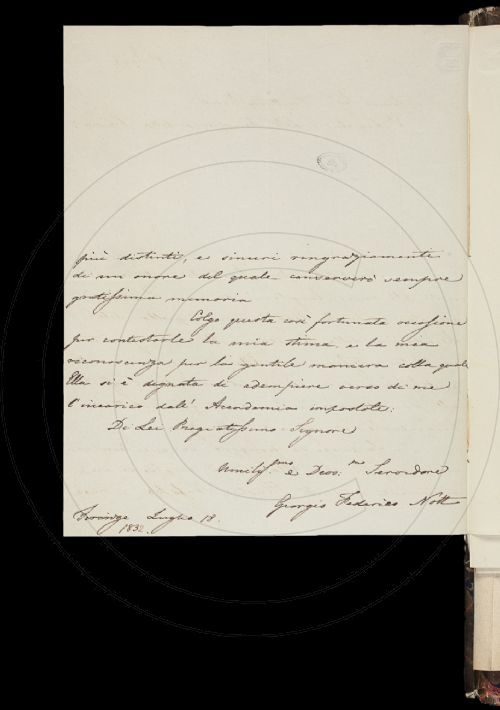 più distinti, e sinceri ringraziamente
di un onore del quale conserverò sempre
gratissima memoria
Colgo questa così fortunata occasione
per contestarle la mia stima e la mia
riconoscenza per la gentile maniera colla quale
Ella si è degnata di adempiere verso di me
l'incarico dall' Accademia impostole:
Di Lei Pregiatissimo Signore
Umiliss.mo e Devo.mo Servidore
Giorgio Federico Nott
Firenze Luglio 18.
1832.